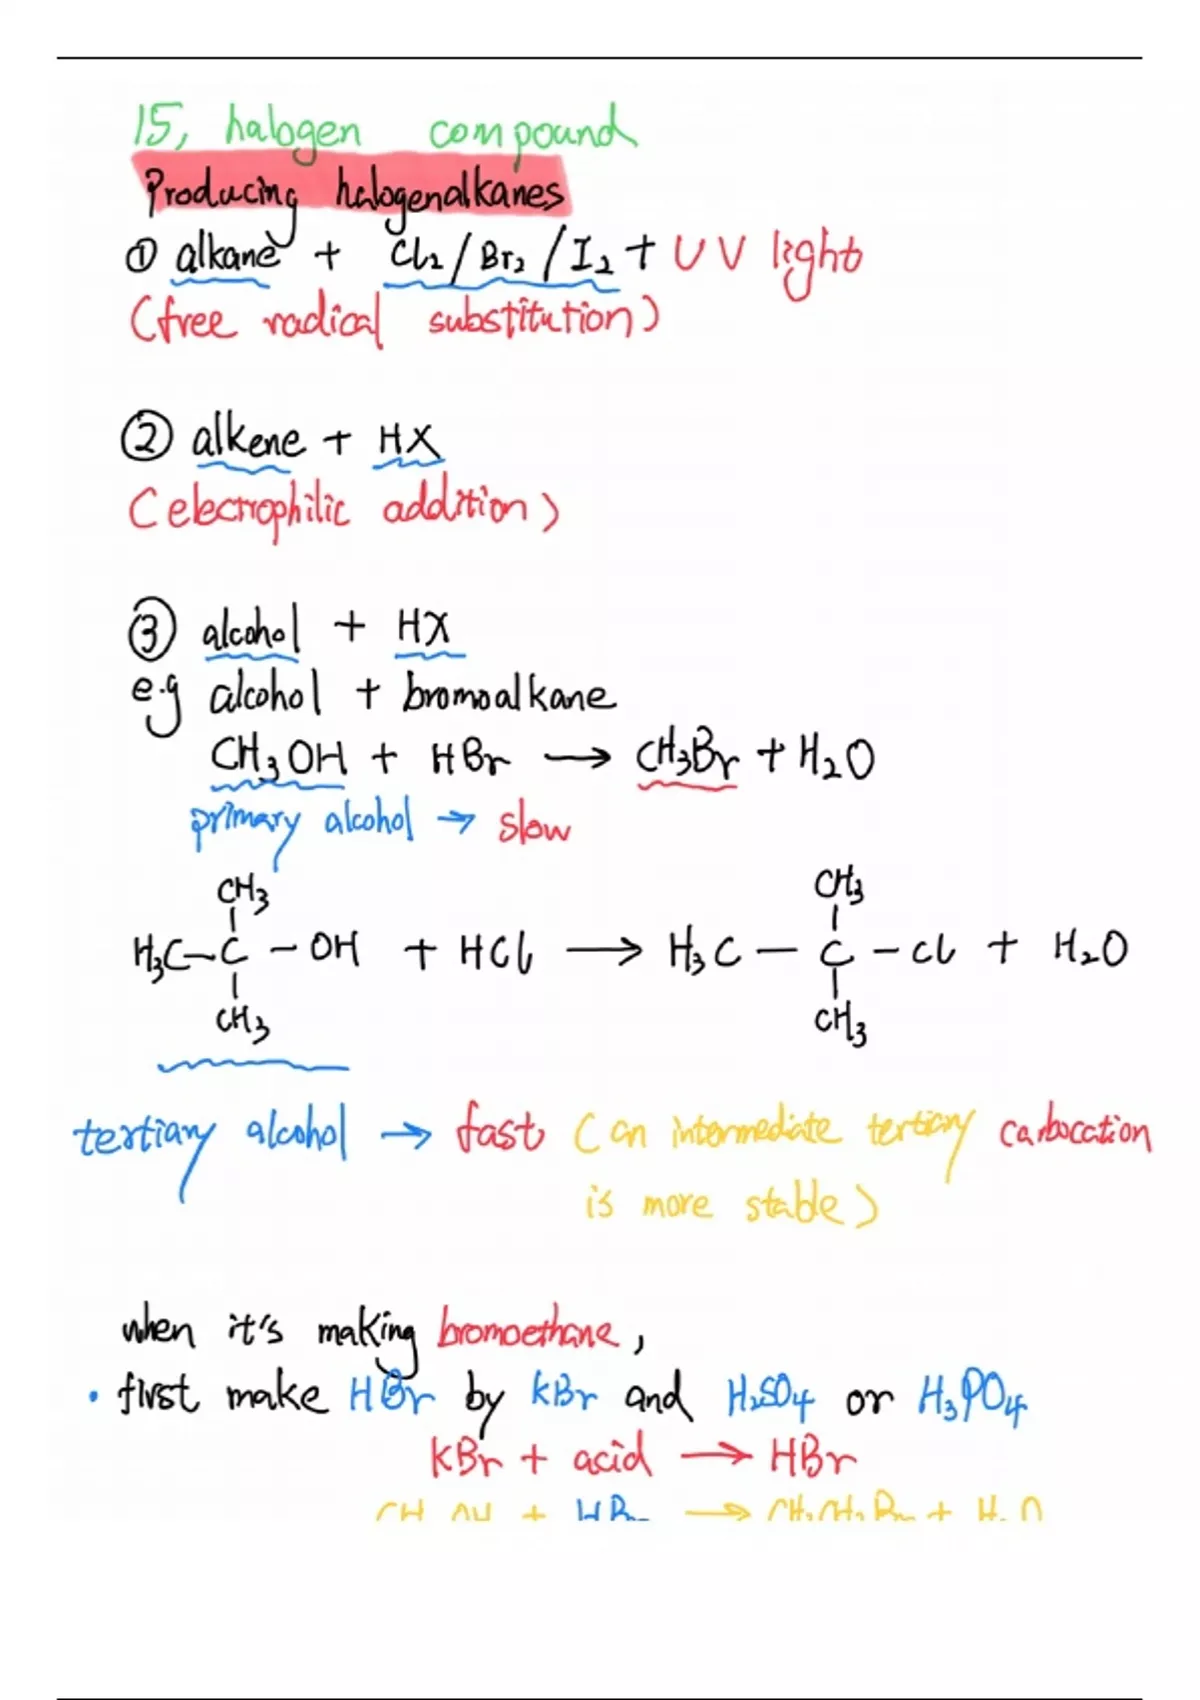 15, halogen compound
Producing halogenalkanes
① alkane + Cl₂/Br₂/I₂ + UV light
(free radical substitution)
② alkene + HX
(electrophilic addition)
③ alcohol + HX
e.g alcohol + bromoalkane
CH₃OH + HBr → CH₃Br + H₂O
primary alcohol → slow
CH₃ CH₃
H₃C-C-OH + HCl → H₃C-C-Cl + H₂O
CH₃ CH₃
tertiary alcohol → fast (an intermediate tertiary carbocation
is more stable)
when it's making bromoethane,
• first make HBr by KBr and H₂SO₄ or H₃PO₄
KBr + acid → HBr
+ HBr → CH₃CH₂Br + H₂O